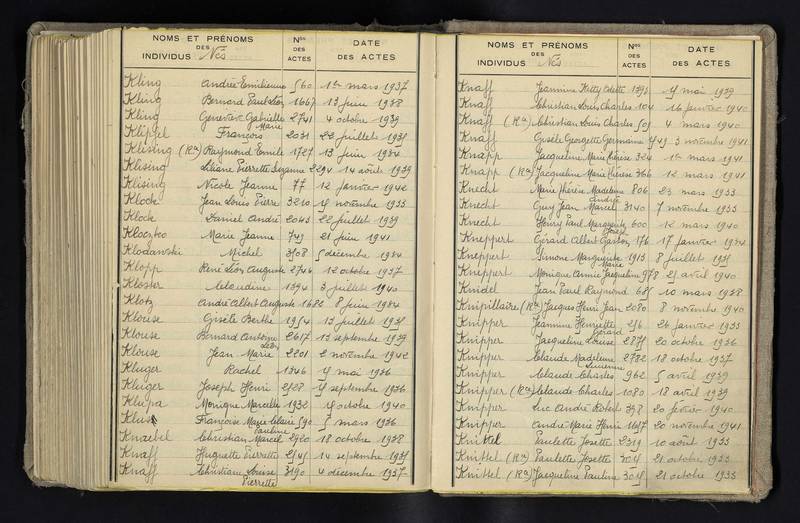 NOMS ET PRÉNOMS DES INDIVIDUS Nés
Nos DES ACTES
DATE DES ACTES
Kling Andrée Emilienne 560 1er mars 1937
Kling Bernard Paul Léon 1667 13 juin 1938
Kling Geneviève Gabrielle 2741 4 octobre 1939
Klipfel François Marie 2031 23 juillet 1935
Klising (Rn) Raymond Emile 1727 13 juin 1934
Klising Liliane Pierrette Suzanne 2294 14 août 1939
Klising Nicole Jeanne 77 12 janvier 1942
Klock Jean Louis Pierre 3210 15 novembre 1933
Klock Daniel André 2043 22 juillet 1939
Kloczko Marie Jeanne 743 21 juin 1941
Klodawski Michel 3508 5 décembre 1934
Klopp René Léon Auguste 2746 12 octobre 1937
Kloster Claudine 1394 3 juillet 1940
Klotz André Albert Auguste 1682 8 juin 1934
Klouse Gisèle Berthe 1954 13 juillet 1935
Klouse Bernard Antoine 2617 13 septembre 1939
Klouse Jean Marie Léon 2201 2 novembre 1942
Kluger Rachel 1346 mai 1936
Kluger Joseph Henri septembre 1936
Klupa Monique Marcelle 1932 octobre 1940
Françoise Marie Claire 590 5 mars 1936
Knaebel Christian Marcel Pauline 2920 18 octobre 1938
Knaff Huguette Pierrette 2545 14 septembre 1935
Knaff Christian Louise Pierrette 3190 4 décembre 1937
NOMS ET PRÉNOMS DES INDIVIDUS Nés
Nos DES ACTES
DATE DES ACTES
Knaff Jeannine Kitty Odette 1396 mai 1939
Knaff Christian Louis Charles 104 16 janvier 1940
Knaff (Rn) Christian Louis Charles 505 4 mars 1940
Knaff Gisèle Georgette Germaine 3 novembre 1941
Knapp Jacqueline Marie Thérèse 324 1er mars 1941
Knapp (Rn) Jacqueline Marie Thérèse 366 12 mars 1941
Knecht Marie Thérèse Madeleine 806 23 mars 1933
Knecht Guy Jean Marcel Andrée 3140 7 novembre 1933
Knecht Henry Paul Marguerite 600 12 mars 1940
Kneppert Gérard Albert Gaston Joseph 176 17 janvier 1934
Kneppert Simone Marguerite 1913 8 juillet 1935
Kneppert Monique Annie Jacqueline Marie 978 25 avril 1940
Knidel Jean Paul Raymond 685 10 mars 1938
Knipillaire (Rn) Jacques Henri Jean 2080 8 novembre 1940
Knipper Jeannine Henriette 256 26 janvier 1933
Knipper Jacqueline Louise Gérard 2875 20 octobre 1936
Knipper Claude Madeleine 2782 18 octobre 1937
Knipper Claude Charles Lucienne 962 5 avril 1939
Knipper (Rn) Claude Charles 1080 18 avril 1939
Knipper Luc André Robert 398 20 février 1940
Knipper André Marie Henri 1657 20 novembre 1941
Knittel Paulette Josette 2319 10 août 1933
Knittel (Rn) Paulette Josette 21 octobre 1933
Knittel (Rn) Jacqueline Pauline 21 octobre 1933